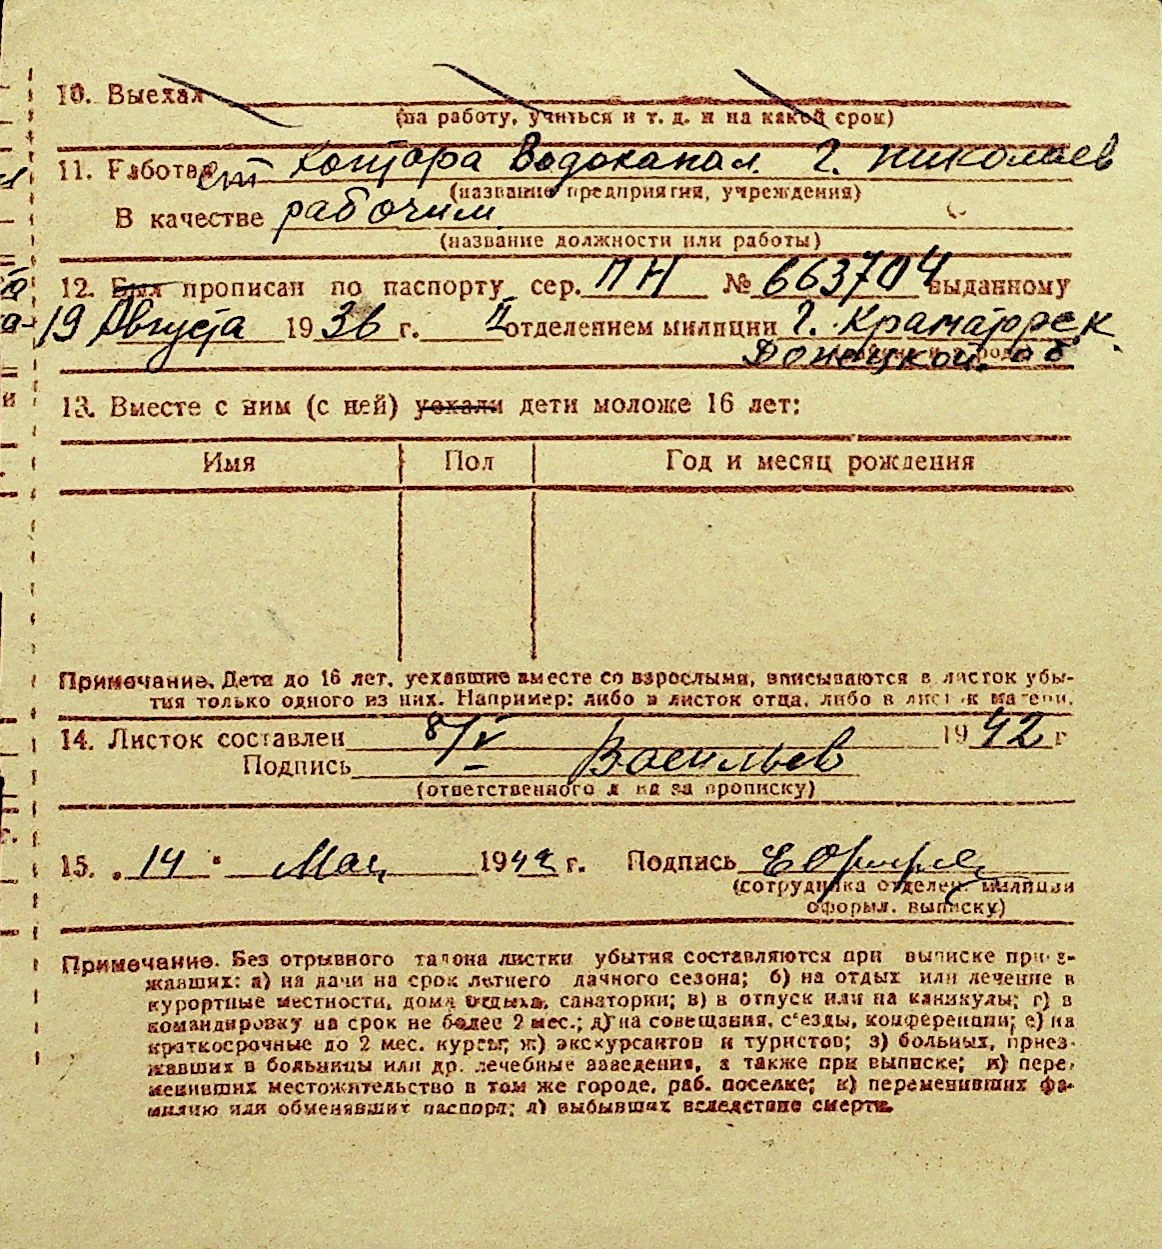 10. Выехал
(на работу, учиться и т. д. и на какой срок)
11. Работал ет контора Водоканал. г. Николаев
(название предприятия, учреждения)
В качестве рабочим
(название должности или работы)
12. Был прописан по паспорту сер. ПН № 663704 выданному
19 Августа 1936 г. II отделением милиции г. Краматорск.
Донецкой об
13. Вместе с ним (с ней) уехали дети моложе 16 лет:
Имя Пол Год и месяц рождения
Примечание. Дети до 16 лет, уехавшие вместе со взрослыми, вписываются в листок убы-
тия только одного из них. Например: либо в листок отца, либо в листок матери.
14. Листок составлен 8/V 1942 г
Подпись Васильев
(ответственного лица за прописку)
15. „14" Мая 1942 г. Подпись
(сотрудника отделен. милиции
оформл. выписку)
Примечание. Без отрывного талона листки убытия составляются при выписке приез-
жавших: а) на дачи на срок летнего дачного сезона; б) на отдых или лечение в
курортные местности, дома отдыха, санатории; в) в отпуск или на каникулы; г) в
командировку на срок не более 2 мес.; д) на совещания, с'езды, конференции; е) на
краткосрочные до 2 мес. курсы; ж) экскурсантов и туристов; з) больных, приез-
жавших в больницы или др. лечебные заведения, а также при выписке; и) пере-
менивших местожительство в том же городе, раб. поселке; к) переменивших фа-
милию или обменявших паспорт; л) выбывших вследствие смерти.